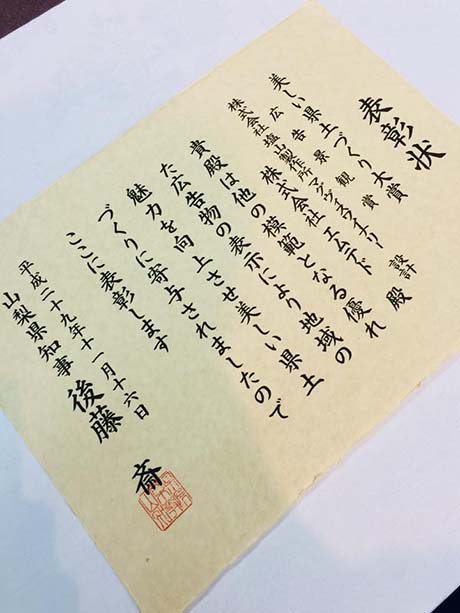 表彰状
美しい県土づくり大賞
広告景観賞 設計
株式会社塩山製作所アヴェスワイナリー
株式会社エムテド 殿
貴殿は他の模範となる優れ
た広告物の表示により地域の
魅力を向上させ美しい県土
づくりに寄与されましたので
ここに表彰します
平成二十九年十一月十六日
山梨県知事 後藤 斎